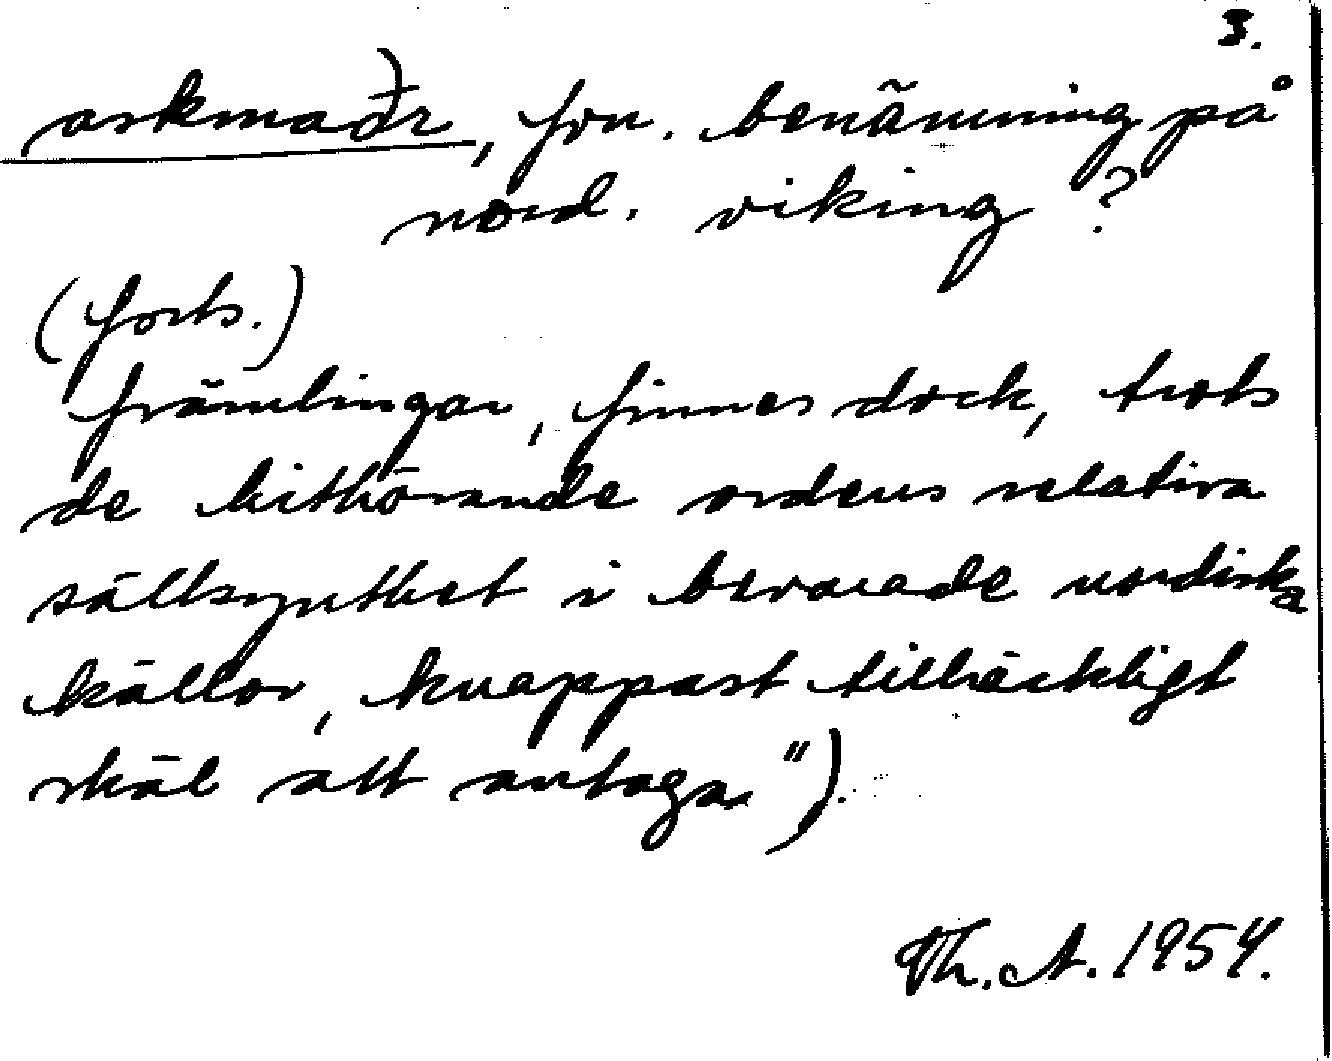 3.
askmaðr, fvn. benämning på
nord. viking?
(forts.)
främlingar, finnes dock, trots
de hithörande ordens relativa
sällsynthet i bevarade nordiska
källor, knappast tillräckligt
skäl att antaga").
Th. A. 1954.